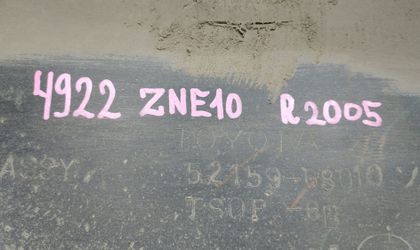 4922 ZNE10 R2005
TOYOT
ASSY 52159-68010
TSOP-6R